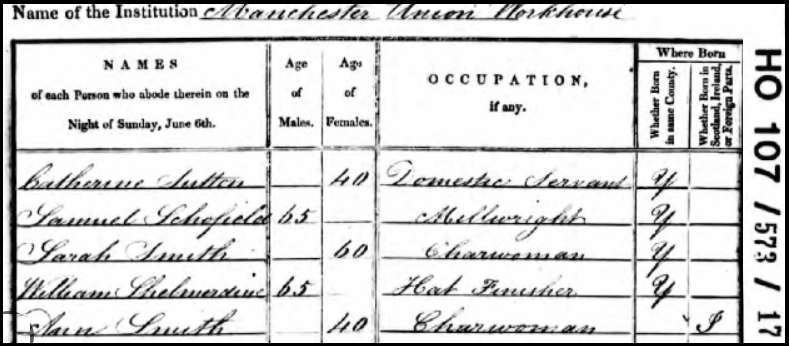 Name of the Institution Manchester Union Workhouse
NAMES of each Person who abode therein on the Night of Sunday, June 6th. Age of Males. Age of Females. OCCUPATION, if any. Where Born Whether Born in same County. Whether Born in Scotland, Ireland, or Foreign Parts.
Catherine Sutton 40 Domestic Servant Y
Samuel Schofield 65 Millwright Y
Sarah Smith 60 Charwoman Y
William Shelmerdine 65 Hat Finisher Y
Ann Smith 40 Charwoman I
HO 107 / 573 / 17